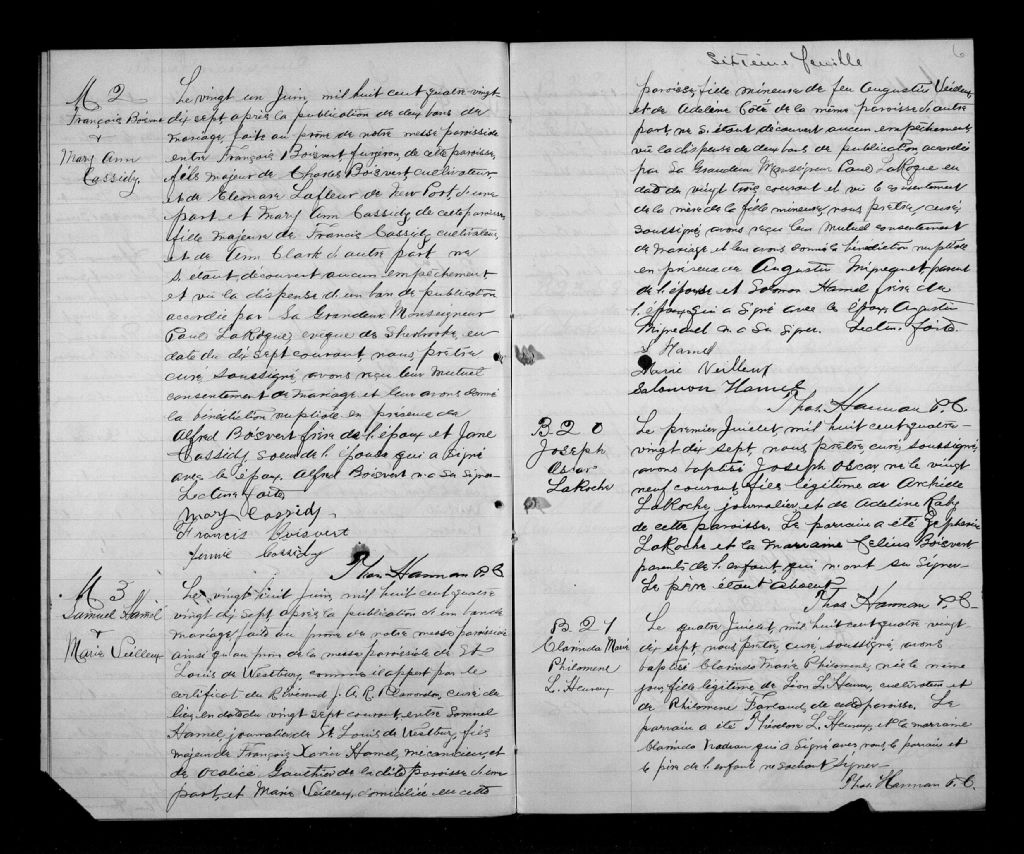 M 2
François Boisvert
+
Mary Ann
Cassidy.
Le vingt un Juin, mil huit cent quatre vingt
dix sept après la publication de deux bans de
mariage, faite au prône de notre messe paroissiale
entre François Boisvert forgeron, de cette paroisse,
fils majeur de Charles Boisvert cultivateur
et de Eleonore Lafleur de New Port, d'une
part et Mary Ann Cassidy de cette paroisse,
fille majeure de Francis Cassidy cultivateur,
et de Ann Clark d'autre part ne
s'étant découvert aucun empêchement
et vu la dispense d'un ban de publication
accordée par Sa Grandeur Monseigneur
Paul LaRoque évêque de Sherbrooke en
date du dix sept courant, nous, prêtre
curé, soussigné, avons reçu leur mutuel
consentement de mariage et leur avons donné
la bénédiction nuptiale en présence de
Alfred Boisvert frère de l'époux et Jane
Cassidy soeur de l'épouse qui a signé
avec l'époux. Alfred Boisvert n'a su signer
Lecture faite
Mary Cassidy
Francis Boisvert
Jennie Cassidy
Thos. Hannan P. C.
M 3
Samuel Hamel
+
Marie Veilleux
Le vingt huit Juin, mil huit cent quatre
vingt dix sept, après la publication d'un ban de
mariage, faite au prône de notre messe paroissiale
ainsi qu'au prône de la messe paroissiale de St
Louis de Westbury, comme il appert par le
certificat du Révérend J. A. R. Plamondon, curé du
lieu, en date du vingt sept courant, entre Samuel
Hamel, journalier de St Louis de Westbury, fils
majeur de François Xavier Hamel, mécanicien, et
de Gauthier de la dite paroisse d'une
part, et Marie Veilleux, domiciliée en cette
Sixième feuille
6
paroisse, fille mineure de feu Augustin Veilleux
et de Adeline Côté de la même paroisse d'autre
part ne s'étant découvert aucun empêchement
vu la dispense de deux bans de publication, accordée
par Sa Grandeur Monseigneur Paul LaRoque en
date du vingt trois courant et vu le consentement
de la mère de la fille mineure, nous, prêtre, curé,
soussigné, avons reçu leur mutuel consentement
de mariage et leur avons donné la bénédiction nuptiale
en présence de Augustin parent
de l'épouse et Solomon Hamel frère de
l'époux qui a signé avec les époux. Augustin
n'a su signer. Lecture faite
S Hamel
Marie Veilleux
Salomon Hamel
Thos. Hannan P. C.
B 20
Joseph
Oscar
LaRoche
Le premier Juillet, mil huit cent quatre-
vingt dix sept, nous, prêtre, curé, soussigné,
avons baptisé Joseph Oscar, né le vingt
neuf courant, fils légitime de Archide
LaRoche, journalier et de Adeline Raby
de cette paroisse. Le parrain a été Zéphirin
LaRoche et la marraine Celius Boisvert
parents de l'enfant, qui n'ont su signer
Le père étant absent.
Thos. Hannan P. C.
B 21
Clarinda Marie
Philomene
L'Heureux
Le quatre Juillet, mil huit cent quatre vingt-
dix sept, nous, prêtre, curé, soussigné, avons
baptisé Clarinda Marie Philomene, née le même
jour, fille légitime de Léon L'Heureux, cultivateur et
de Philomene Farland, de cette paroisse. Le
parrain a été Théodore L'Heureux, et la marraine
Clarinda Nadeau qui a signé avec nous, le parrain et
le père de l'enfant ne sachant signer
Thos. Hannan P. C.